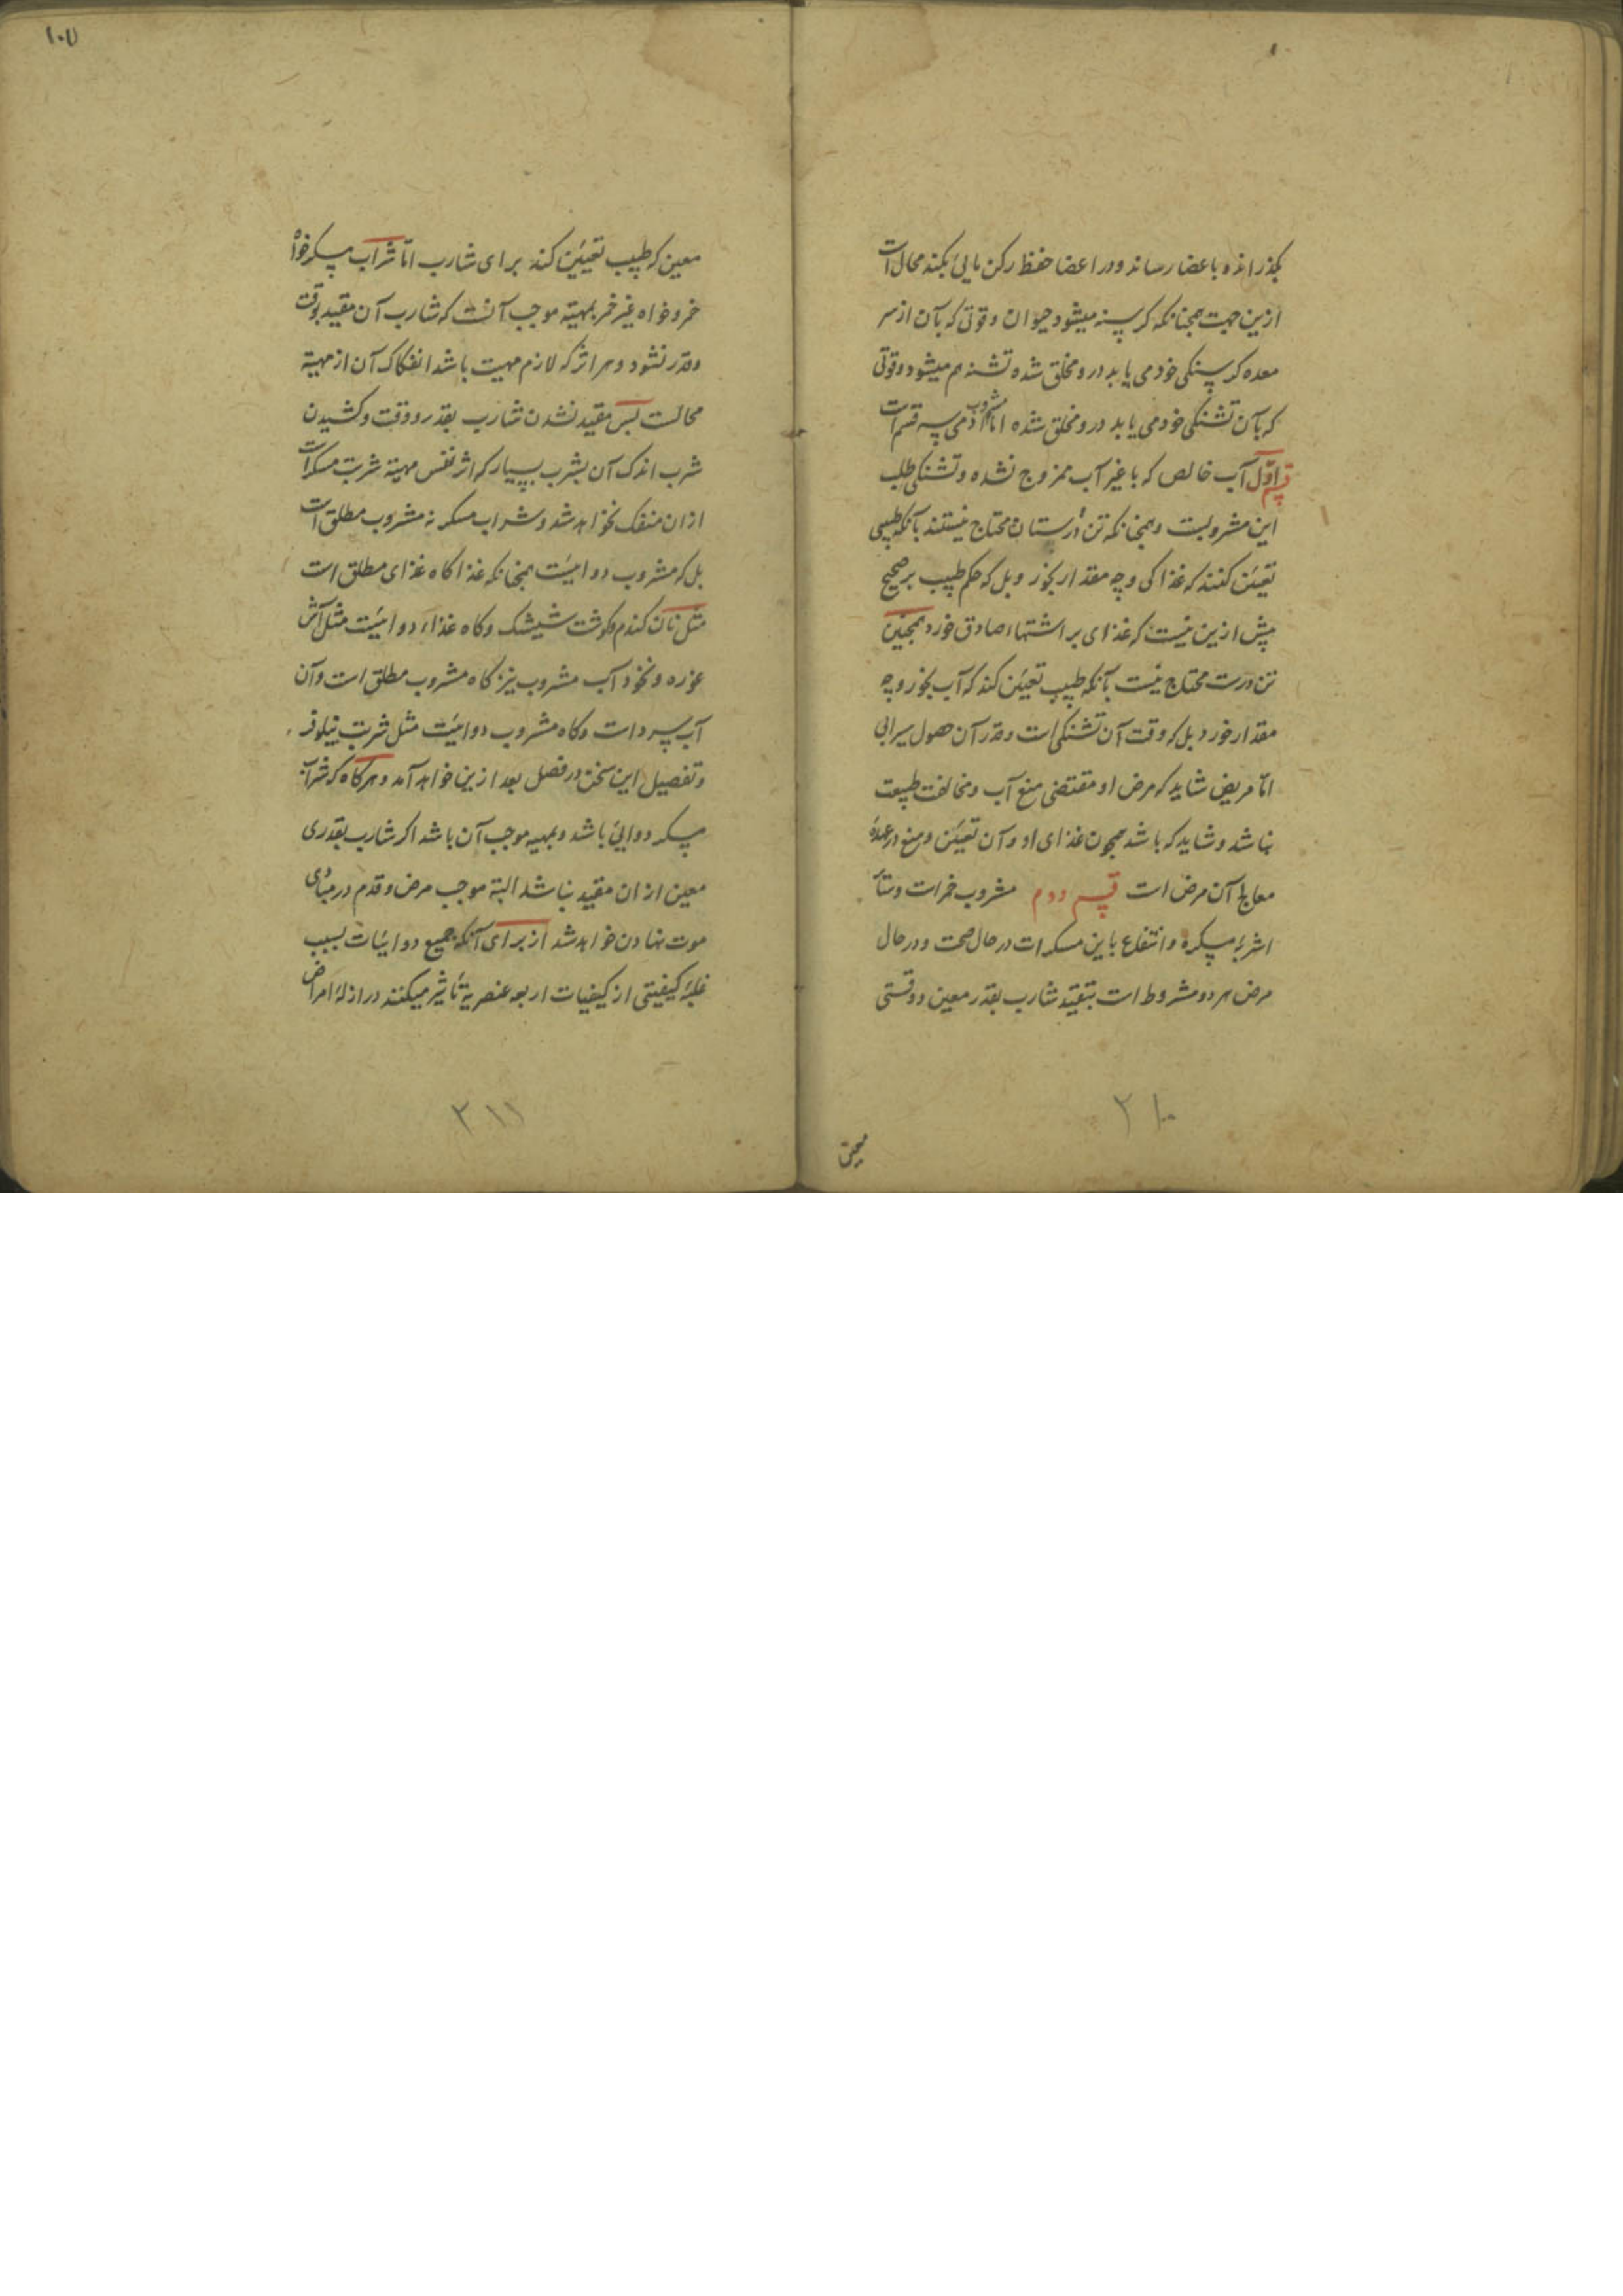 بکذراند و باعضا رساند و در اعضا حفظ رکن مایی بکند محال است
ازین جهت همچنانکه کرسنه میشود حیوان و قوتی که بآن از سر
معده کرسنکی خود می یابد درو مخلق شده تشنه هم میشود و قوتی
که بآن تشنکی خود می یابد درو مخلق شده اما مشروب آدمی سه قسم است
قسم اوّل آب خالص که با غیر آب ممزوج نشده و تشنکی طلب
این مشروبست و همچنانکه تن درستان محتاج نیستند بآنکه طبیبی
تعیین کنند که غذا کی و چه مقدار بخور و بل که حکم طبیب بر صحیح
پیش ازین نیست که غذای بر اشتهاء صادق خورد همچنین
تن درست محتاج نیست بآنکه طبیب تعیین کند که آب بخور و چه
مقدار خورد بل که وقت آن تشنکی است و قدر آن حصول سیرابی
امّا مریض شاید که مرض او مقتضی منع آب و مخالفت طبیعت
نباشد و شاید که باشد همچون غذای او و آن تعیین و منع در عهدهٔ
معالج آن مرض است قسم دوم مشروب خمرات و سائر
اشربهٔ مسکره و انتفاع باین مسکرات در حال صحت و در حال
مرض هر دو مشروط است بتقیید شارب بقدر معین و وقتی
معین
۲۱۰
۱۰۷
معین که طبیب تعیین کند برای شارب امّا شراب مسکر خواه
خمر و خواه غیر خمر بمهیته موجب آنست که شارب آن مقید بوقت
و قدر نشود و هر اثر که لازم مهیت باشد انفکاک آن از مهیته
محالست بس مقید نشدن شارب بقدر و وقت و کشیدن
شرب اندک آن بشرب بسیار که اثر نفس مهیته شربت مسکر است
ازان منفک نخواهد شد و شراب مسکر نه مشروب مطلق است
بل که مشروب دوائیست همچنانکه غذا کاه غذای مطلق است
مثل نان کندم و کوشت شیشک و کاه غذاء دوائیست مثل آش
غوره و نخود آب مشروب نیز کاه مشروب مطلق است و آن
آب سرد است و کاه مشروب دوائیست مثل شربت نیلوفر
و تفصیل این سخن در فصل بعد ازین خواهد آمد و هرکاه که شراب
مسکر دوایی باشد و بمهیه موجب آن باشد اکر شارب بقدری
معین ازان مقید نباشد البته موجب مرض و قدم در مبادی
موت نهادن خواهد شد از برای آنکه جمیع دوائیات بسبب
غلبهٔ کیفیتی از کیفیات اربعه عنصریه تأثیر میکنند در ازالهٔ امراض
۲۱۱